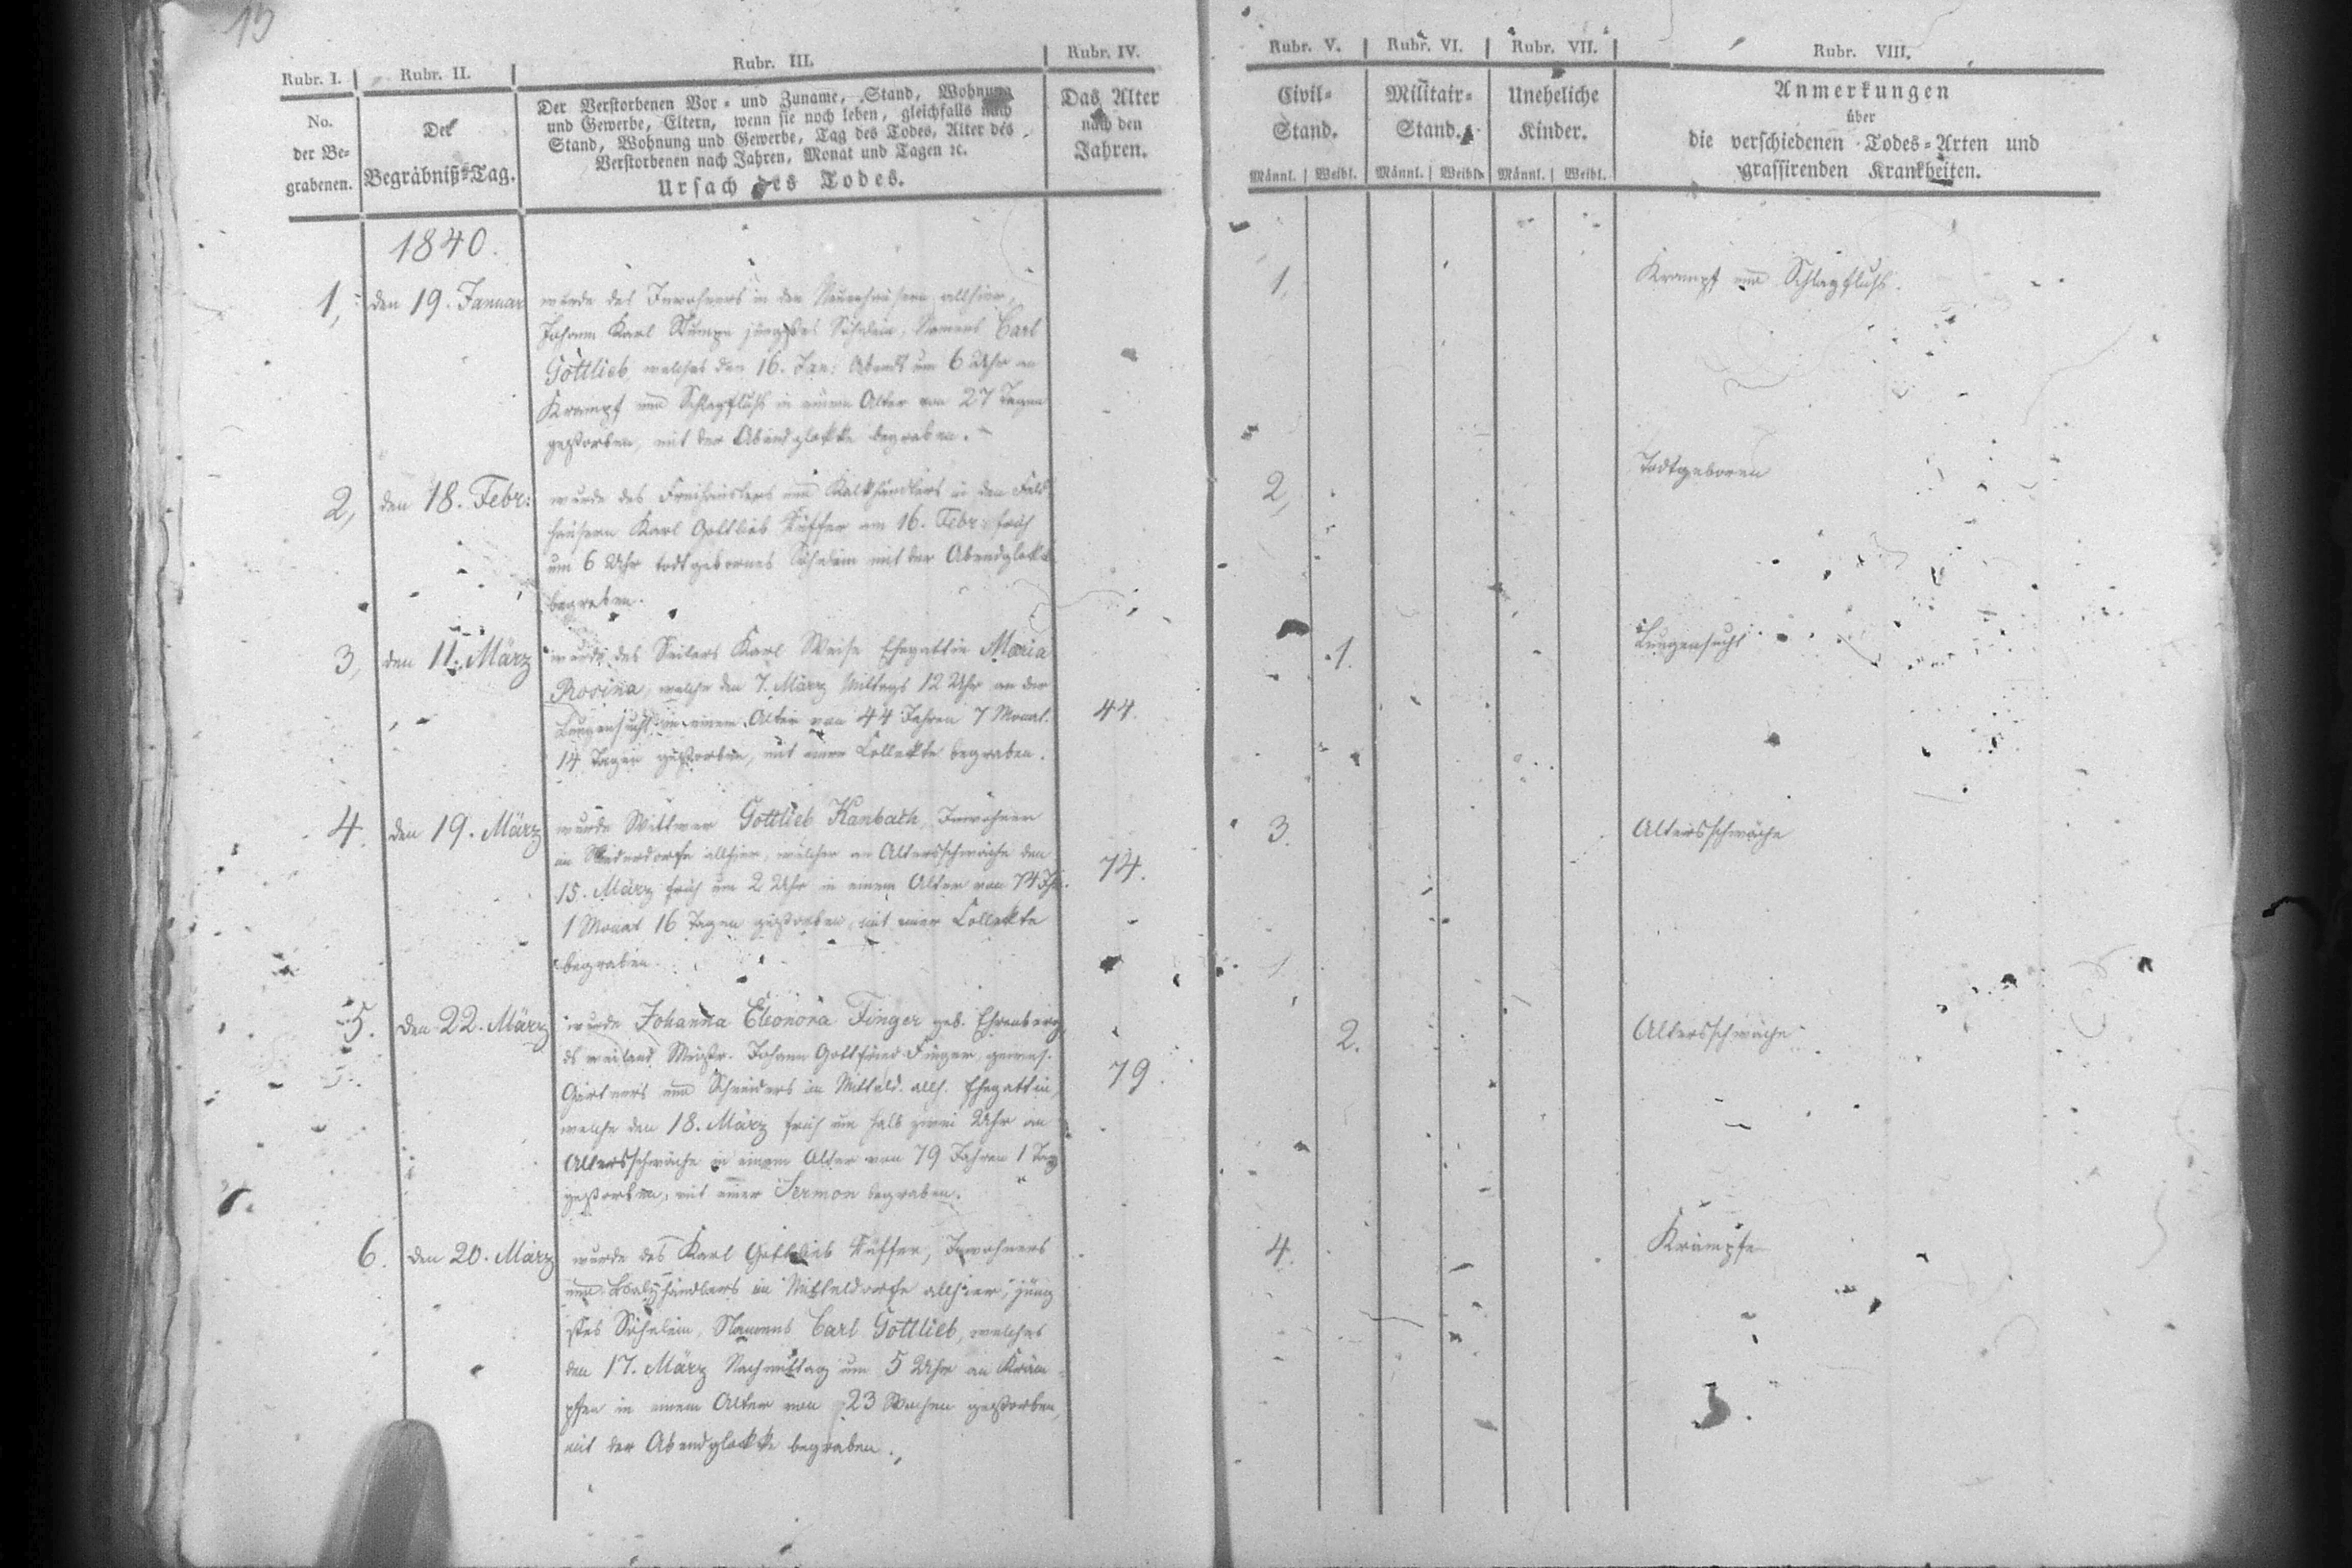 15
Rubr. I. Rubr. II. Rubr. III. Rubr. IV. Rubr. V. Rubr. VI. Rubr. VII. Rubr. VIII.
No.
der Be-
grabenen.
Der
Begräbniß-Tag.
Der Verstorbenen Vor- und Zuname, Stand, Wohnung
und Gewerbe, Eltern, wenn sie noch leben, gleichfalls nach
Stand, Wohnung und Gewerbe, Tag des Todes, Alter des
Verstorbenen nach Jahren, Monat und Tagen ꝛc.
Ursach des Todes.
Das Alter
nach den
Jahren.
Civil-
Stand.
Männl. Weibl.
Militair-
Stand.
Männl. Weibl.
Uneheliche
Kinder.
Männl. Weibl.
Anmerkungen
über
die verschiedenen Todes-Arten und
grassirenden Krankheiten.
1840.
1, den 19. Januar
wurde des Inwohners in den allhier,
Johann Karl jüngstes Söhnlein, Namens Carl
Gottlieb, welches den 16. Jan: Abends um 6 Uhr an
Krampf und Schlagfluß in einem Alter von 27 Tagen
gestorben, mit der Abendglokke begraben.
1,
Krampf und Schlagfluß.
2, den 18. Febr:
wurde des Freihäuslers und Kalkhändlers in den Feld
häusern Karl Gottlieb Küffer am 16. Febr: früh
um 6 Uhr todtgebornes Söhnlein mit der Abendglokke
begraben.
2,
Todtgeboren
3, den 11. März
wurde des Seilers Karl Weise Ehegattin Maria
Rosina, welche den 7. März Mittags 12 Uhr an der
Lungensucht in einem Alter von 44 Jahren 7 Monat.
14 Tagen gestorben, mit einer Collekte begraben.
44.
1.
Lungensucht
4. den 19. März
wurde Wittwer Gottlieb Kanbach, Inwohner
im Niederdorfe allhier, welcher an Altersschwäche den
15. März früh um 2 Uhr in einem Alter von 74 Jhr.
1 Monat 16 Tagen gestorben, mit einer Collekte
begraben.
74.
3.
Altersschwäche
5. den 22. März
wurde Johanna Eleonora Finger geb. Ehrenberg,
ds weiland Mstr. Johann Gottfried Finger, gewes.
Gärtners und Schneiders im Mitteld. allh. Ehegattin,
welche den 18. März früh um halb zwei Uhr an
Altersschwäche in einem Alter von 79 Jahren 1 Tag
gestorben, mit einer Sermon begraben.
79.
2.
Altersschwäche
6. den 20. März
wurde des Karl Gottlieb Küffer, Inwohners
und im Mitteldorfe allhier, jüng
stes Söhnlein, Namens Carl Gottlieb, welches
den 17. März Nachmittag um 5 Uhr an Kräm
pfen in einem Alter von 23 Wochen gestorben,
mit der Abendglokke begraben.
4.
Krämpfe